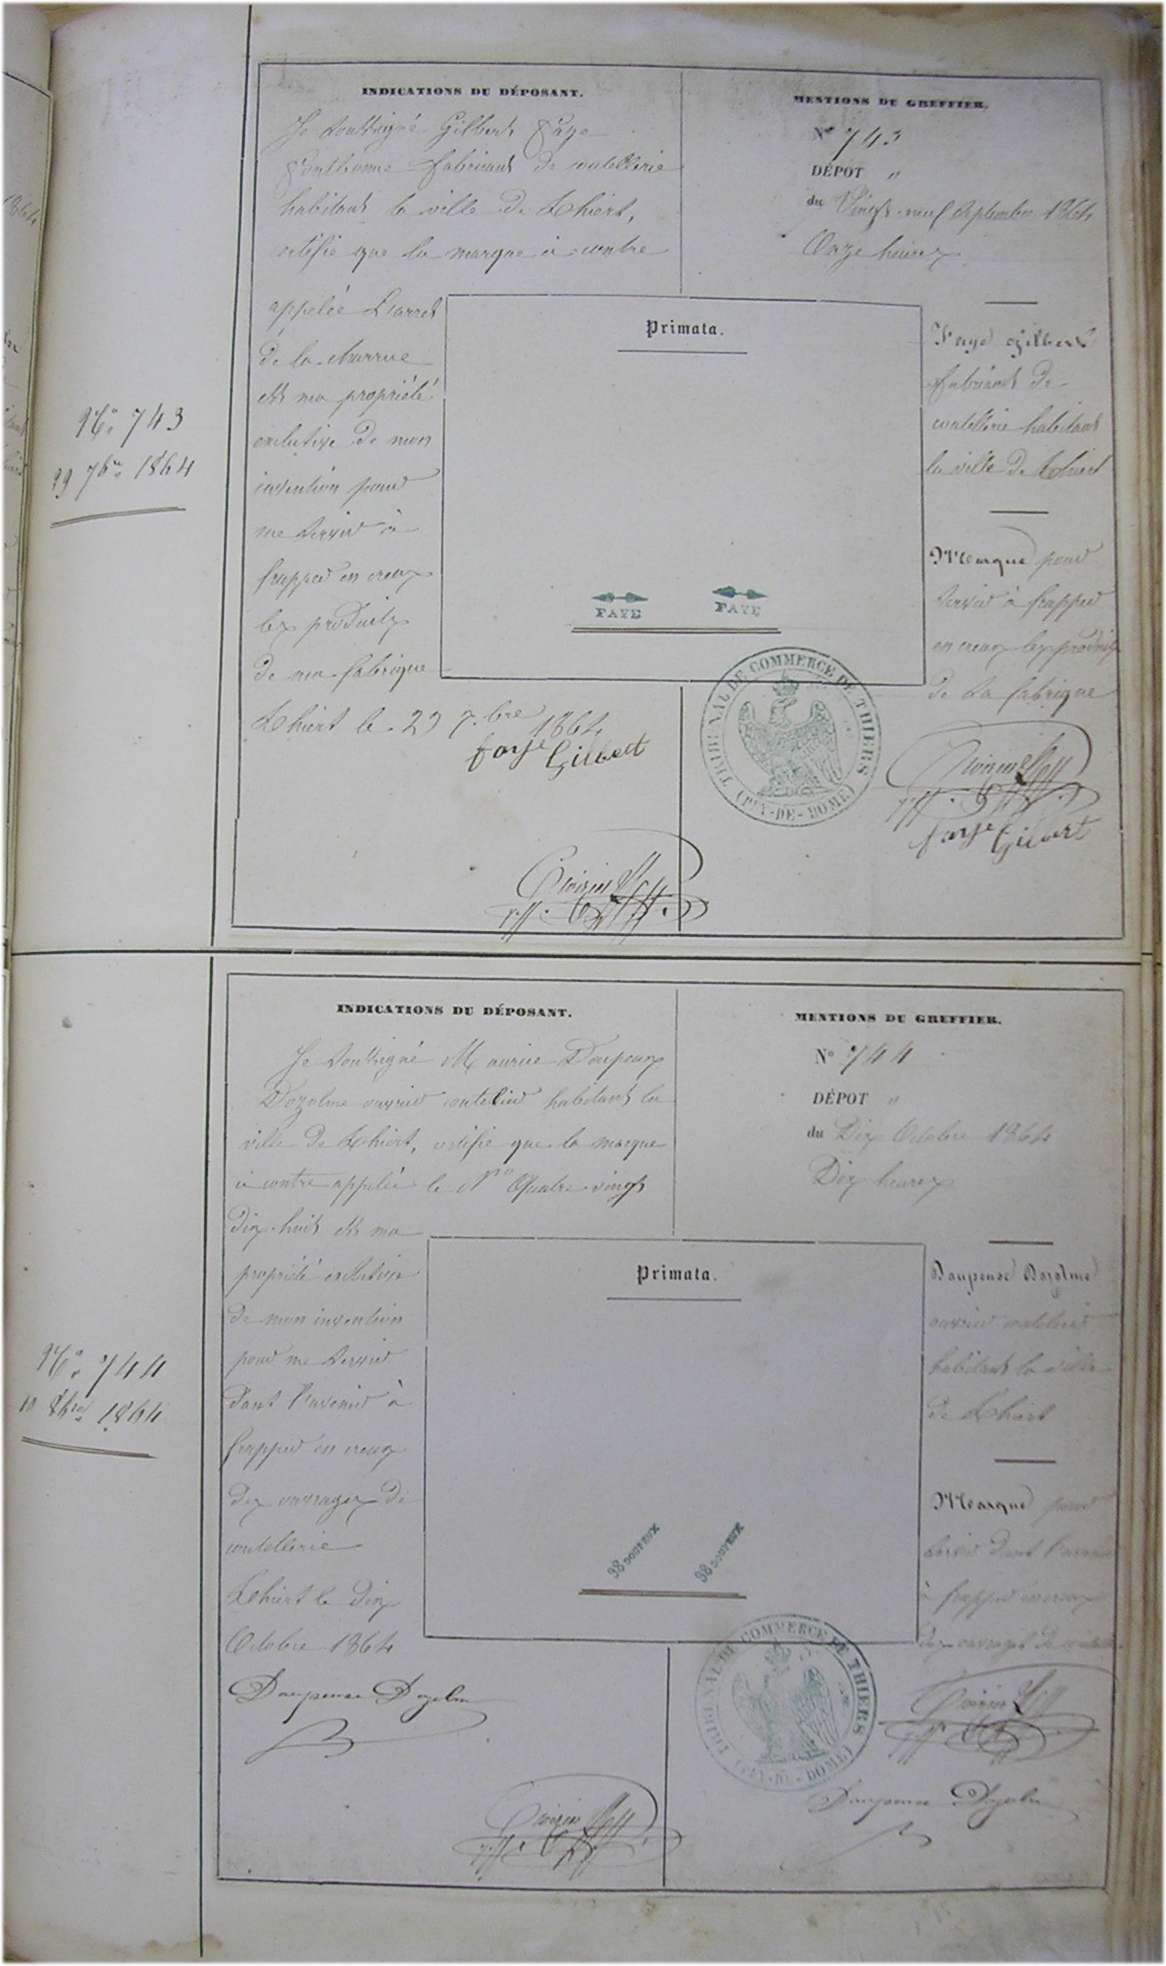 INDICATIONS DU DÉPOSANT.
Je soussigné Gilbert Faye
fabricant de coutellerie
habitant la ville de Thiers,
certifie que la marque ci contre
appelée L'arret
de la charrue
est ma propriété
exclusive de mon
invention pour
me servir à
frapper en creux
les produits
de ma fabrique
Thiers le 29 7bre 1864
faye Gilbert
MENTIONS DU GREFFIER.
N° 743
DÉPOT "
du Vingt-neuf Septembre 1864
Onze heures
Primata.
FAYE FAYE
Faye Gilbert
fabricant de
coutellerie habitant
la ville de Thiers
Marque pour
servir à frapper
en creux les produits
de la fabrique
faye Gilbert
TRIBUNAL DE COMMERCE DE THIERS
(PUY-DE-DOME)
N° 743
29 7bre 1864
INDICATIONS DU DÉPOSANT.
Je soussigné Maurice
Dozolme ouvrier coutelier habitant la
ville de Thiers, certifie que la marque
ci contre appelée le N° Quatre vingt
dix-huit est ma
propriété exclusive
de mon invention
pour me servir
dans l'avenir à
frapper en creux
des ouvrages de
coutellerie
Thiers le dix
Octobre 1864
MENTIONS DU GREFFIER.
N° 744
DÉPOT "
du Dix Octobre 1864
Dix heures
Primata.
98 98
Dozolme
ouvrier coutelier
habitant la ville
de Thiers
Marque pour
servir dans l'avenir
à frapper en creux
des ouvrages de
TRIBUNAL DE COMMERCE DE THIERS
(PUY-DE-DOME)
N° 744
10 8bre 1864